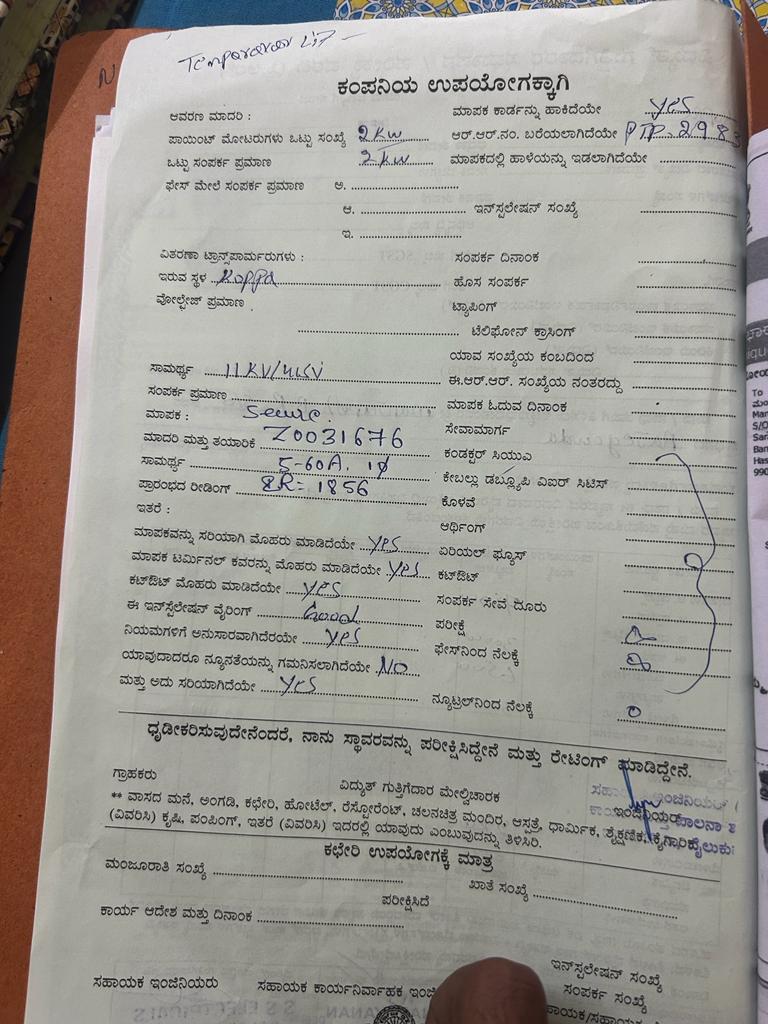 Temporarar Lit -
N
ಕಂಪನಿಯ ಉಪಯೋಗಕ್ಕಾಗಿ
ಆವರಣ ಮಾದರಿ : ಮಾಪಕ ಕಾರ್ಡನ್ನು ಹಾಕಿದೆಯೇ yes
ಪಾಯಿಂಟ್ ಮೋಟರುಗಳು ಒಟ್ಟು ಸಂಖ್ಯೆ 2 KW ಆರ್.ಆರ್.ನಂ. ಬರೆಯಲಾಗಿದೆಯೇ PTP-2983
ಒಟ್ಟು ಸಂಪರ್ಕ ಪ್ರಮಾಣ 2 KW ಮಾಪಕದಲ್ಲಿ ಹಾಳೆಯನ್ನು ಇಡಲಾಗಿದೆಯೇ
ಫೇಸ್ ಮೇಲೆ ಸಂಪರ್ಕ ಪ್ರಮಾಣ ಅ.
ಆ. ಇನ್‌ಸ್ಟಲೇಷನ್ ಸಂಖ್ಯೆ
ಇ.
ವಿತರಣಾ ಟ್ರಾನ್ಸ್‌ಪಾರ್ಮರುಗಳು : ಸಂಪರ್ಕ ದಿನಾಂಕ
ಇರುವ ಸ್ಥಳ Koppa ಹೊಸ ಸಂಪರ್ಕ
ವೋಲ್ಟೇಜ್ ಪ್ರಮಾಣ ಟ್ಯಾಪಿಂಗ್
ಟೆಲಿಫೋನ್ ಕ್ರಾಸಿಂಗ್
ಯಾವ ಸಂಖ್ಯೆಯ ಕಂಬದಿಂದ
ಸಾಮರ್ಥ್ಯ 11KV/ ಈ.ಆರ್.ಆರ್. ಸಂಖ್ಯೆಯ ನಂತರದ್ದು
ಸಂಪರ್ಕ ಪ್ರಮಾಣ ಮಾಪಕ ಓದುವ ದಿನಾಂಕ
ಮಾಪಕ : Secure ಸೇವಾಮಾರ್ಗ
ಮಾದರಿ ಮತ್ತು ತಯಾರಿಕೆ Z0031676 ಕಂಡಕ್ಟರ್ ಸಿಯುವಿ
ಸಾಮರ್ಥ್ಯ 5-60A. 1φ ಕೇಬಲ್ಲು ಡಬ್ಲ್ಯೂಪಿ ವಿಐರ್ ಸಿಟಿಸ್
ಪ್ರಾರಂಭದ ರೀಡಿಂಗ್ 1856 ಕೊಳವೆ
ಇತರೆ : ಆರ್ಥಿಂಗ್
ಮಾಪಕವನ್ನು ಸರಿಯಾಗಿ ಮೊಹರು ಮಾಡಿದೆಯೇ yes ಏರಿಯಲ್ ಫ್ಯೂಸ್
ಮಾಪಕ ಟರ್ಮಿನಲ್ ಕವರನ್ನು ಮೊಹರು ಮಾಡಿದೆಯೇ yes ಕಟ್‌ಔಟ್
ಕಟ್‌ಔಟ್ ಮೊಹರು ಮಾಡಿದೆಯೇ yes ಸಂಪರ್ಕ ಸೇವೆ ದೂರು
ಈ ಇನ್‌ಸ್ಟಲೇಷನ್ ವೈರಿಂಗ್ Good ಪರೀಕ್ಷೆ
ನಿಯಮಗಳಿಗೆ ಅನುಸಾರವಾಗಿದೆರಯೇ yes ಫೇಸ್‌ನಿಂದ ನೆಲಕ್ಕೆ
ಯಾವುದಾದರೂ ನ್ಯೂನತೆಯನ್ನು ಗಮನಿಸಲಾಗಿದೆಯೇ NO
ಮತ್ತು ಅದು ಸರಿಯಾಗಿದೆಯೇ yes ನ್ಯೂಟ್ರಲ್‌ನಿಂದ ನೆಲಕ್ಕೆ 0
ಧೃಡೀಕರಿಸುವುದೇನೆಂದರೆ, ನಾನು ಸ್ಥಾವರವನ್ನು ಪರೀಕ್ಷಿಸಿದ್ದೇನೆ ಮತ್ತು ರೇಟಿಂಗ್ ಮಾಡಿದ್ದೇನೆ.
ಗ್ರಾಹಕರು ವಿದ್ಯುತ್ ಗುತ್ತಿಗೆದಾರ ಮೇಲ್ವಿಚಾರಕ ಇಂಜಿನಿಯರ್
** ವಾಸದ ಮನೆ, ಅಂಗಡಿ, ಕಛೇರಿ, ಹೋಟೆಲ್, ರೆಸ್ಟೋರೆಂಟ್, ಚಲನಚಿತ್ರ ಮಂದಿರ, ಆಸ್ಪತ್ರೆ, ಧಾರ್ಮಿಕ, ಶೈಕ್ಷಣಿಕ,
(ವಿವರಿಸಿ) ಕೃಷಿ, ಪಂಪಿಂಗ್, ಇತರೆ (ವಿವರಿಸಿ) ಇದರಲ್ಲಿ ಯಾವುದು ಎಂಬುವುದನ್ನು ತಿಳಿಸಿರಿ.
ಕಛೇರಿ ಉಪಯೋಗಕ್ಕೆ ಮಾತ್ರ
ಮಂಜೂರಾತಿ ಸಂಖ್ಯೆ ಖಾತೆ ಸಂಖ್ಯೆ
ಪರೀಕ್ಷಿಸಿದೆ
ಕಾರ್ಯ ಆದೇಶ ಮತ್ತು ದಿನಾಂಕ
ಇನ್‌ಸ್ಟಲೇಷನ್ ಸಂಖ್ಯೆ
ಸಹಾಯಕ ಇಂಜಿನಿಯರು ಸಹಾಯಕ ಕಾರ್ಯನಿರ್ವಾಹಕ ಸಂಪರ್ಕ ಸಂಖ್ಯೆ